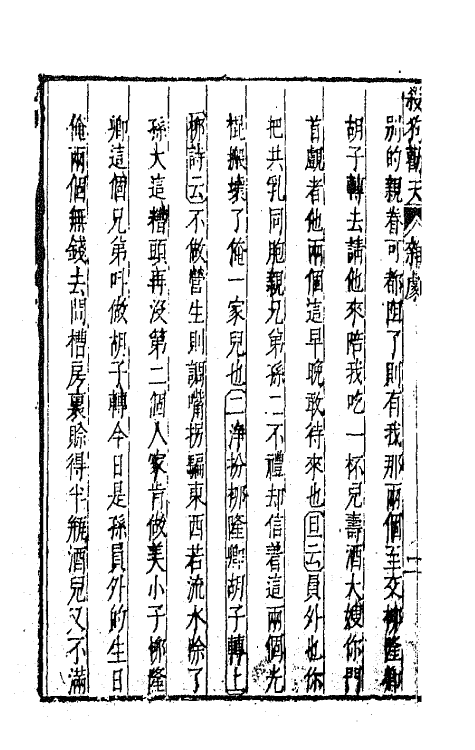 殺狗勸夫 雜劇 二
別的親眷可都阻了則有我那兩個至交柳隆卿
胡子轉去請他來陪我吃一杯兒壽酒大嫂你門
首覷者他兩個這早晚敢待來也旦云員外也你
把共乳同胞親兄弟孫二不禮却信着這兩個光
棍搬壞了俺一家兒也二淨扮柳隆卿胡子轉上
柳詩云不做營生則調嘴拐騙東西若流水除了
孫大這糟頭再沒第二個人家肯做美小子柳隆
卿這個兄弟叫做胡子轉今日是孫員外的生日
俺兩個無錢去問槽房裏賒得半瓶酒兒又不滿